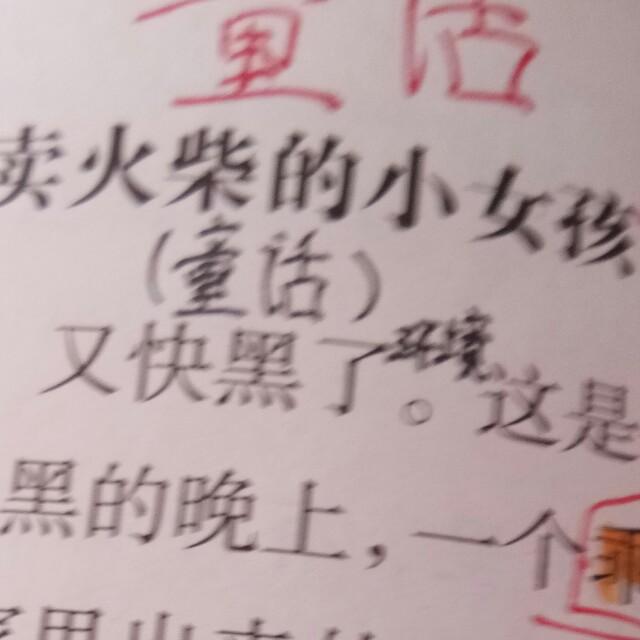 童话
卖火柴的小女孩
（童话）
又快黑了。环境、这是
黑的晚上，一个乖